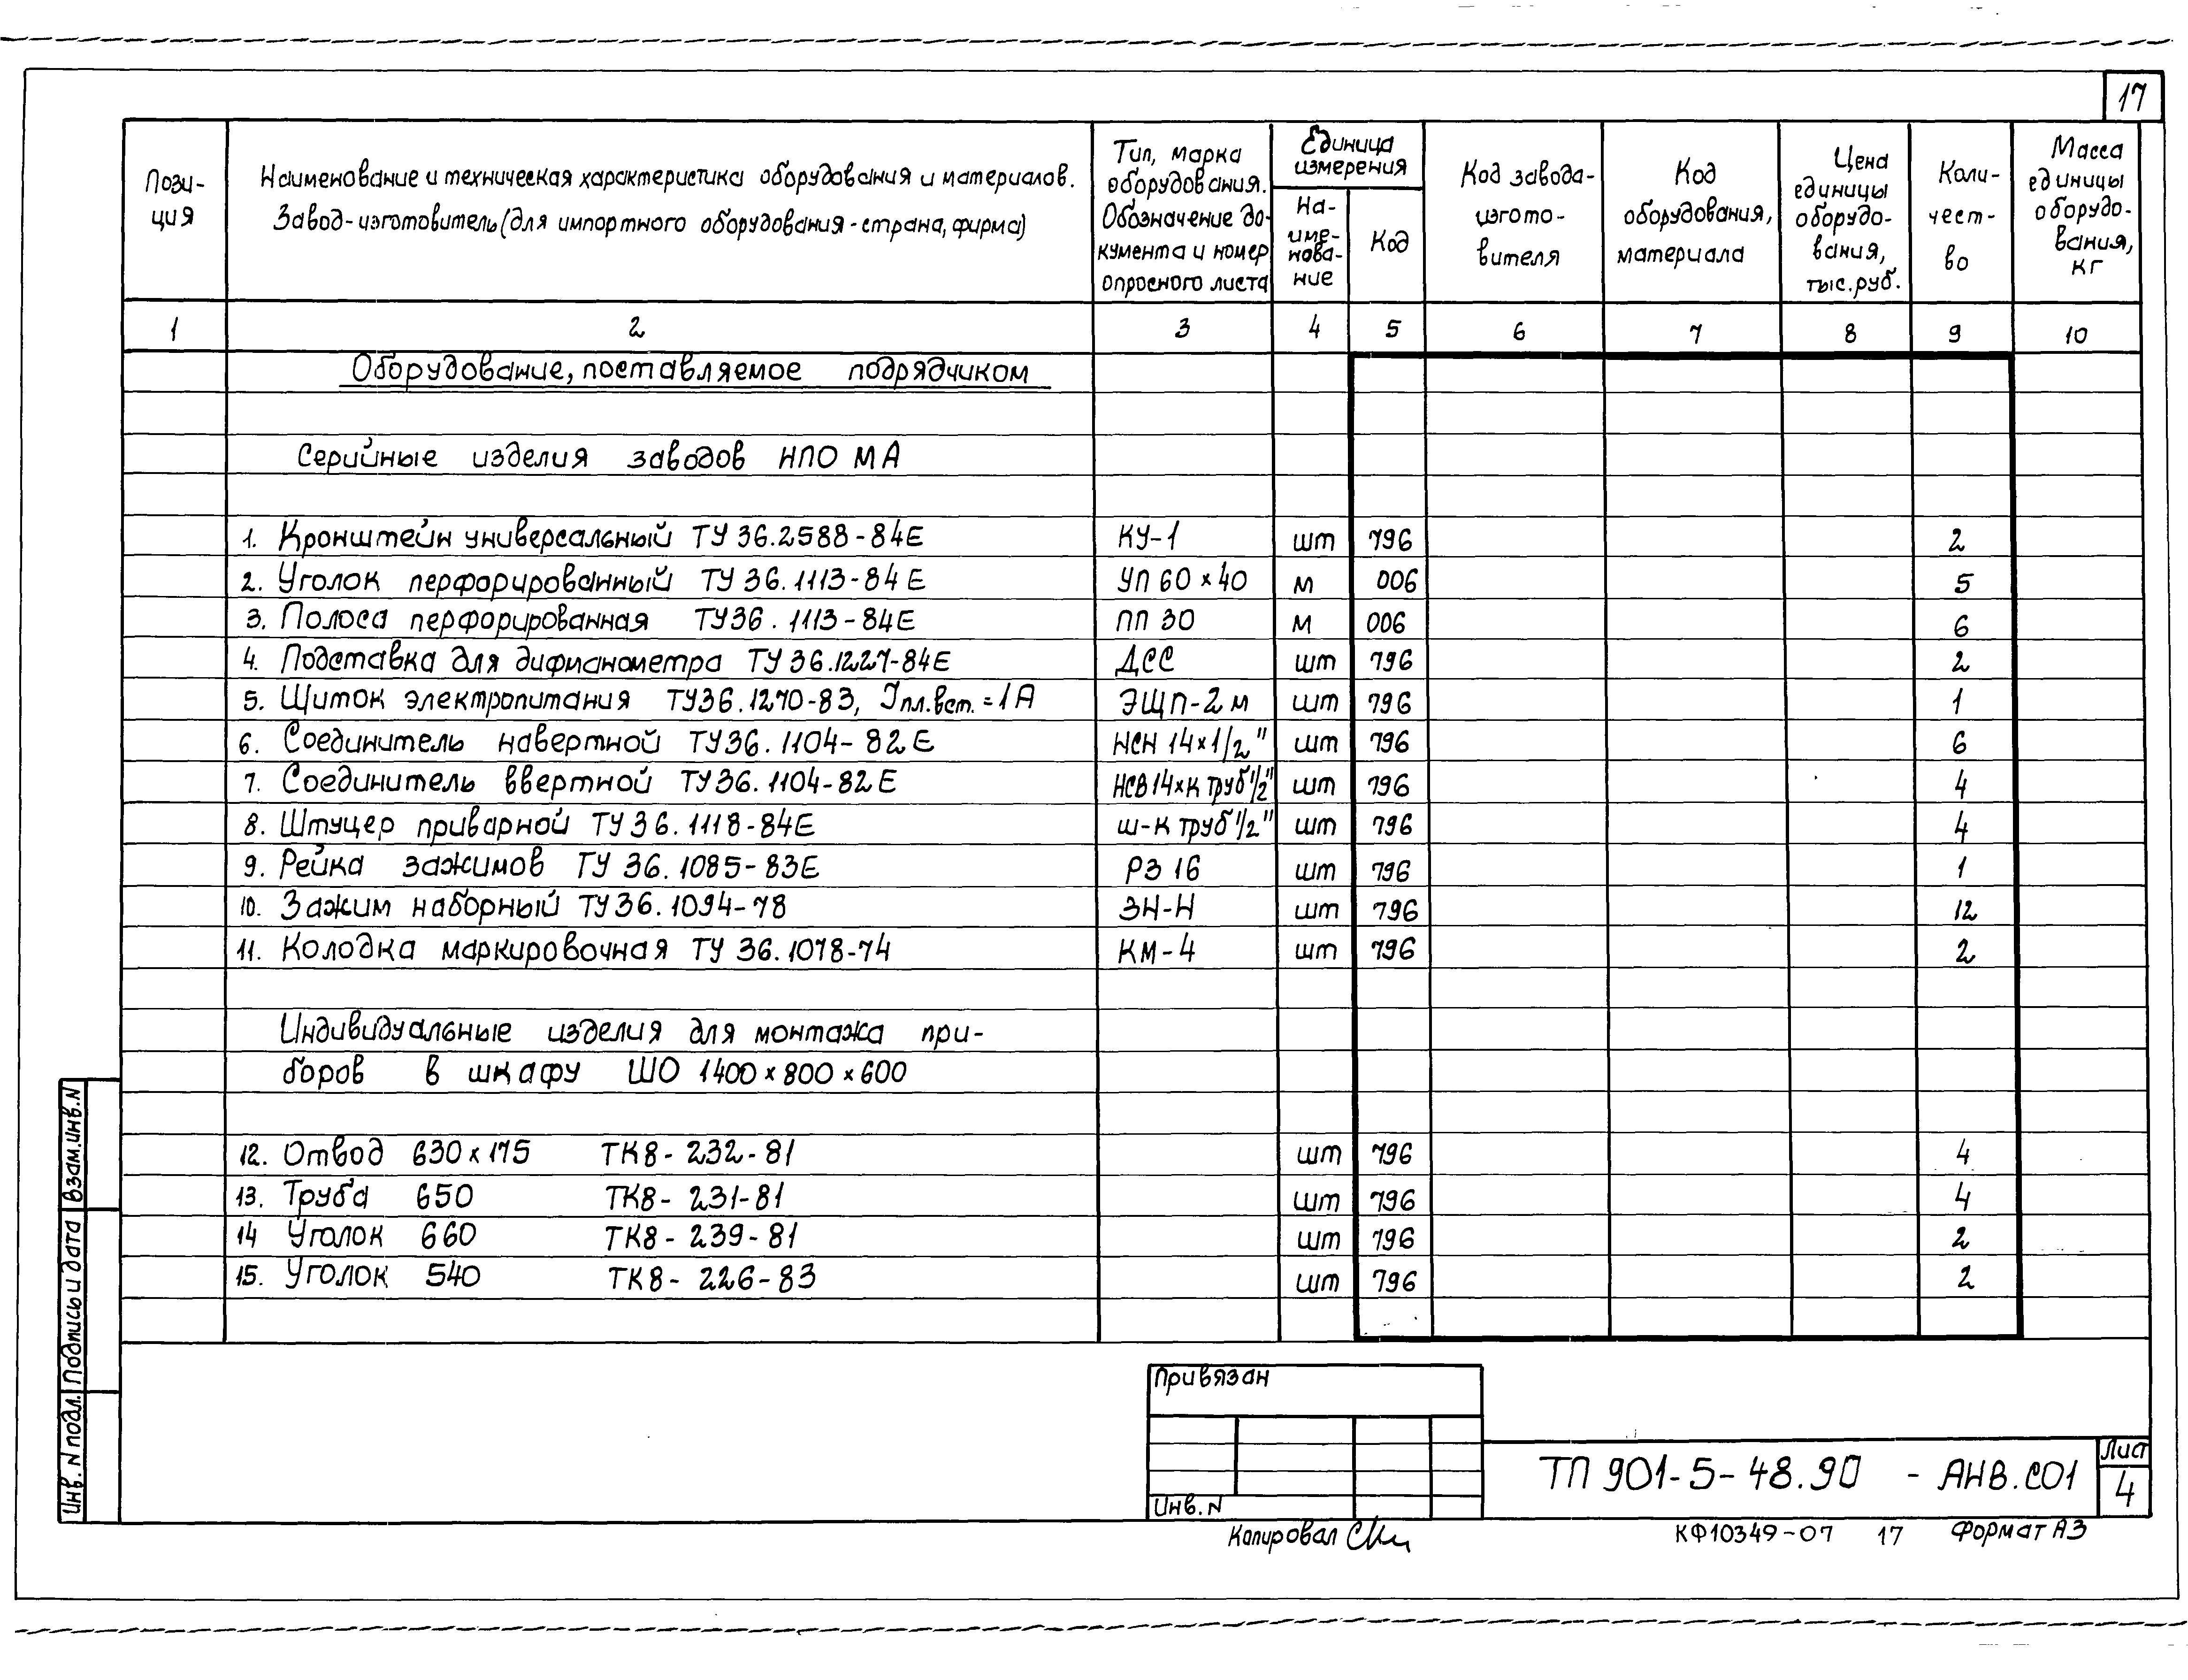 17
Пози-
ция
Наименование и техническая характеристика оборудования и материалов.
Завод-изготовитель (для импортного оборудования - страна, фирма)
Тип, марка
оборудования.
Обозначение до-
кумента и номер
опросного листа
Единица
измерения
На-
име-
нова-
ние
Код
Код завода-
изгото-
вителя
Код
оборудования,
материала
Цена
единицы
оборудо-
вания,
тыс. руб.
Коли-
чест-
во
Масса
единицы
оборудо-
вания,
кг
1 2 3 4 5 6 7 8 9 10
Оборудование, поставляемое подрядчиком
Серийные изделия заводов НПО МА
1. Кронштейн универсальный ТУ 36.2588-84Е КУ-1 шт 796 2
2. Уголок перфорированный ТУ 36.1113-84Е УП 60×40 м 006 5
3. Полоса перфорированная ТУ36.1113-84Е ПП 30 м 006 6
4. Подставка для дифманометра ТУ 36.1227-84Е ДСС шт 796 2
5. Щиток электропитания ТУ36.1270-83, Iпл.вст.=1А ЭЩП-2м шт 796 1
6. Соединитель навертной ТУ36.1104-82Е НСН 14×1/2" шт 796 6
7. Соединитель ввертной ТУ36.1104-82Е НСВ14×К труб 1/2" шт 796 4
8. Штуцер приварной ТУ 36.1118-84Е ш-К труб 1/2" шт 796 4
9. Рейка зажимов ТУ 36.1085-83Е РЗ 16 шт 796 1
10. Зажим наборный ТУ36.1094-78 ЗН-Н шт 796 12
11. Колодка маркировочная ТУ 36.1078-74 КМ-4 шт 796 2
Индивидуальные изделия для монтажа при-
боров в шкафу ШО 1400×800×600
12. Отвод 630×175 ТК8-232-81 шт 796 4
13. Труба 650 ТК8-231-81 шт 796 4
14 Уголок 660 ТК8-239-81 шт 796 2
15. Уголок 540 ТК8-226-83 шт 796 2
Взам.инв.N
Подпись и дата
Инв. N подл.
Привязан
Инв. N
ТП 901-5-48.90 - АНВ.СО1
Лист
4
Копировал
КФ10349-07 17 Формат А3